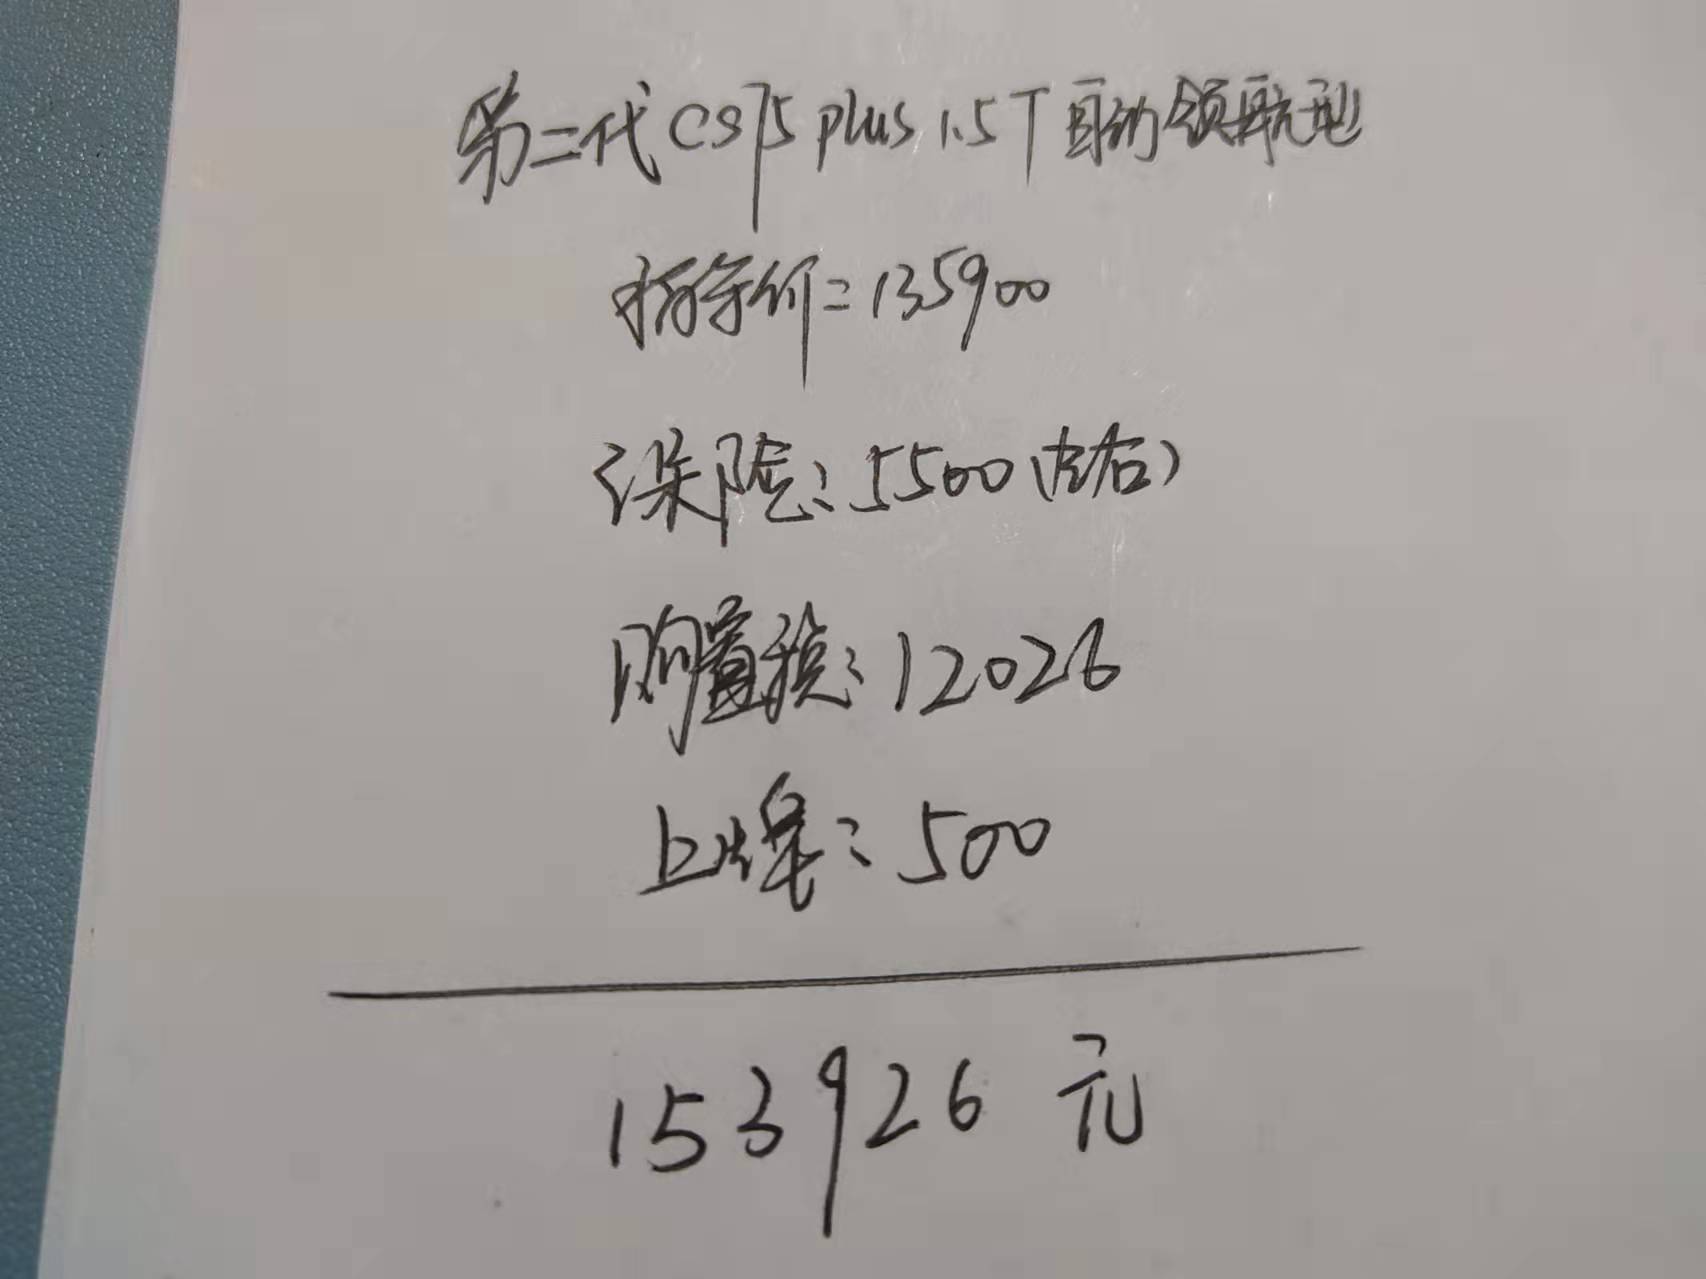 第二代CS75 plus 1.5T自动领航型
指导价:135900
保险:5500(左右)
购置税:12026
上牌:500
153926 元